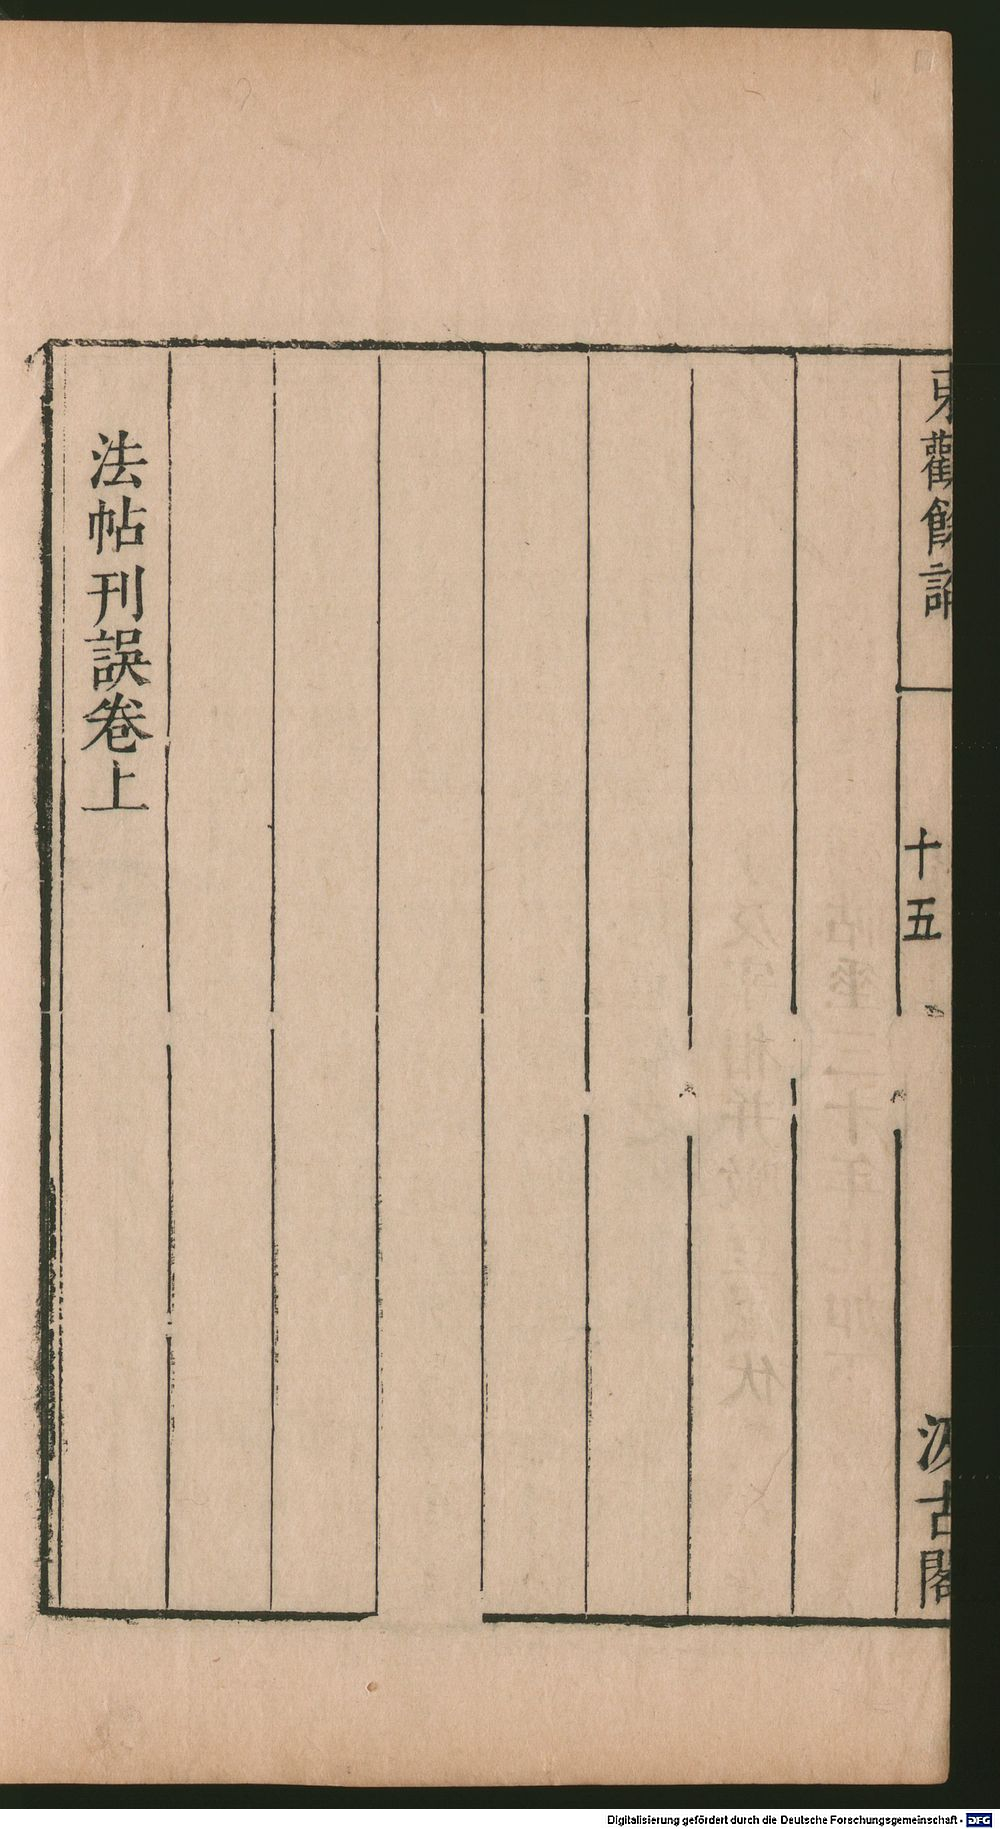 東觀餘論
十五
汲古閣
法帖刊誤卷上
Digitalisierung gefördert durch die Deutsche Forschungsgemeinschaft - DFG